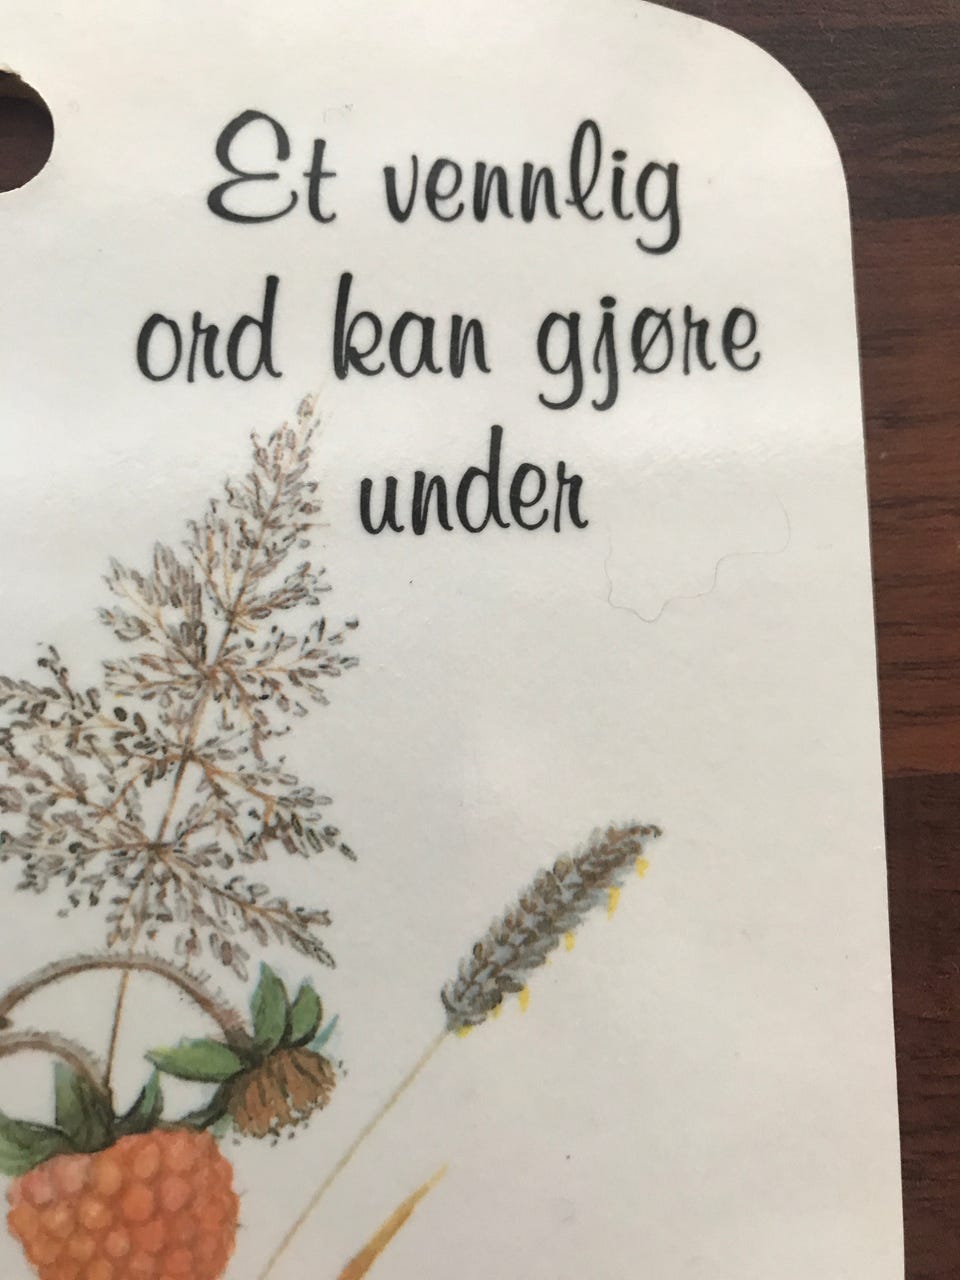 Et vennlig
ord kan gjøre
under